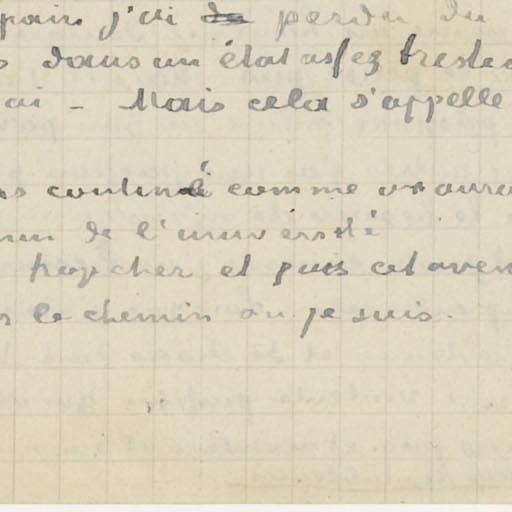 pain j'ai perdu du
dans un état assez triste
ai - Mais cela s'appelle
continué comme on aura
de l'université
trop cher et puis cet aven
le chemin ou je suis.